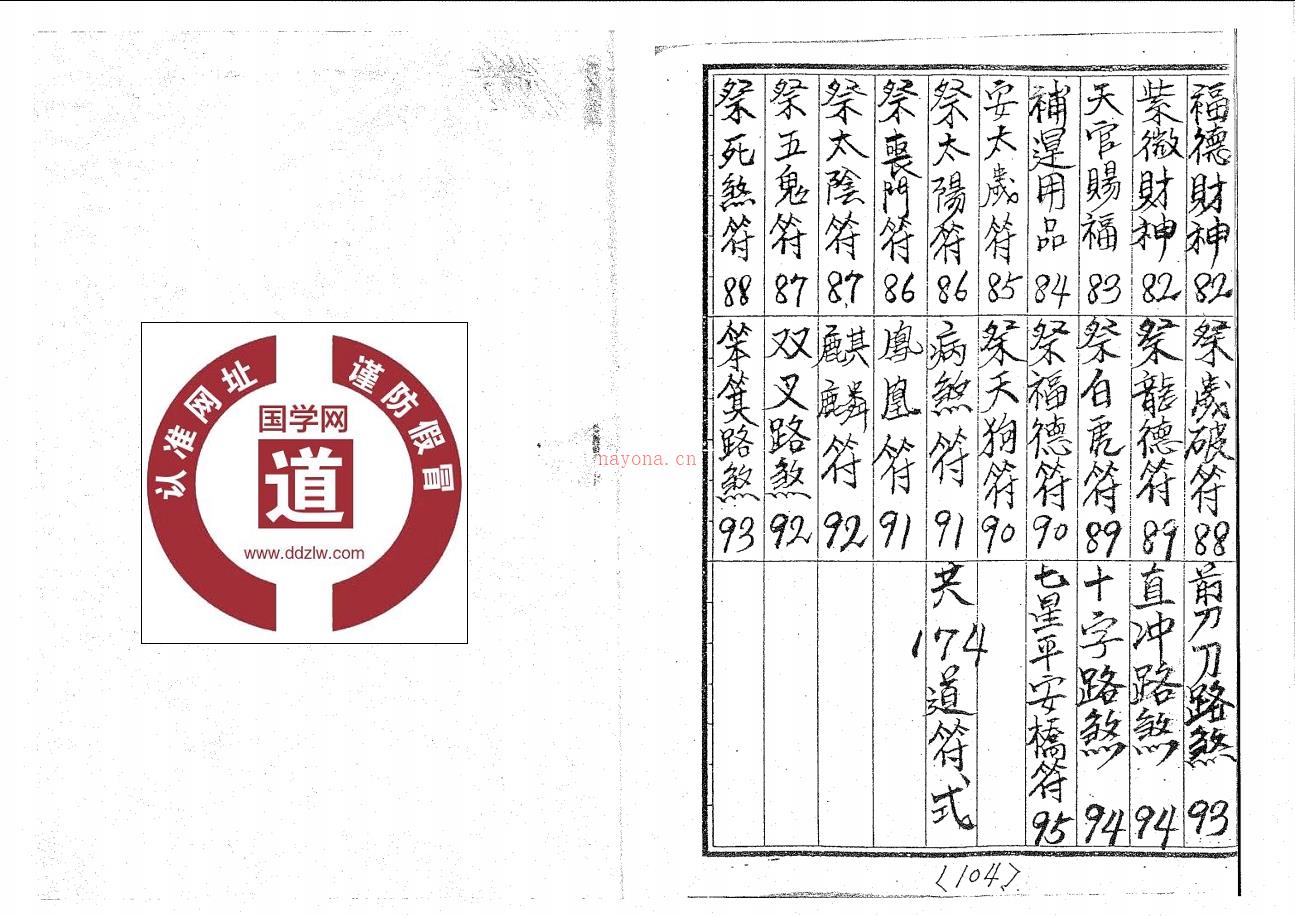 认准网址
谨防假冒
国学网
道
www.ddzlw.com
nayona.cn
福德財神82
紫微財神82
天官賜福83
補運用品84
安太歲符85
祭太陽符86
祭喪門符86
祭太陰符87
祭五鬼符87
祭死煞符88
祭歲破符88
祭龍德符89
祭白虎符89
祭福德符90
祭天狗符90
病煞符91
鳳凰符91
麒麟符92
双叉路煞92
笨箕路煞93
剪刀路煞93
直冲路煞94
十字路煞94
七星平安橋符95
共174道符式
〈104〉